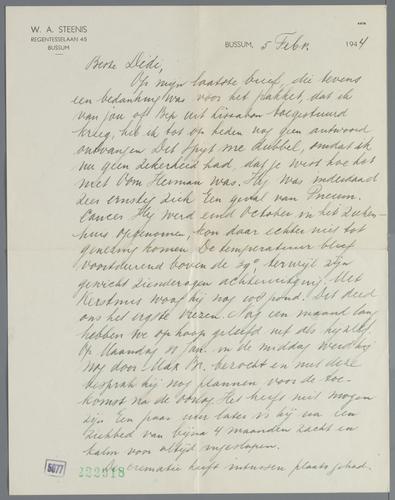 W. A. STEENIS
REGENTESSELAAN 45
BUSSUM
BUSSUM, 5 Febr. 1944
Beste Didi,
Op mijn laatste brief, die tevens
een bedanking was voor het pakket, dat ik
van jou of Bep uit Lissabon toegestuurd
kreeg, heb ik tot op heden nog geen antwoord
ontvangen. Het spijt me dubbel, omdat ik
nu geen zekerheid had, dat je wist hoe het
met Oom Herman was. Hij was inderdaad
zeer ernstig ziek. Een geval van
Hij werd eind October in het zieken-
huis opgenomen, kon daar echter niet tot
genezing komen. De temperatuur bleef
voortdurend boven de 39°, terwijl zijn
gewicht zienderogen achteruitging. Met
Kerstmis woog hij nog pond. Dit deed
ons het ergste vrezen. Nog een maand lang
hebben we op hoop geleefd net als hij zelf.
Op Maandag Jan. in de middag werd hij
nog door Max Br. bezocht en met deze
besprak hij nog plannen voor de toe-
komst na de oorlog. Het heeft niet mogen
zijn. Een paar uur later is hij na een
ziekbed van bijna 4 maanden zacht en
kalm voor altijd ingeslapen.
De crematie heeft intussen plaats gehad.
5677
222918